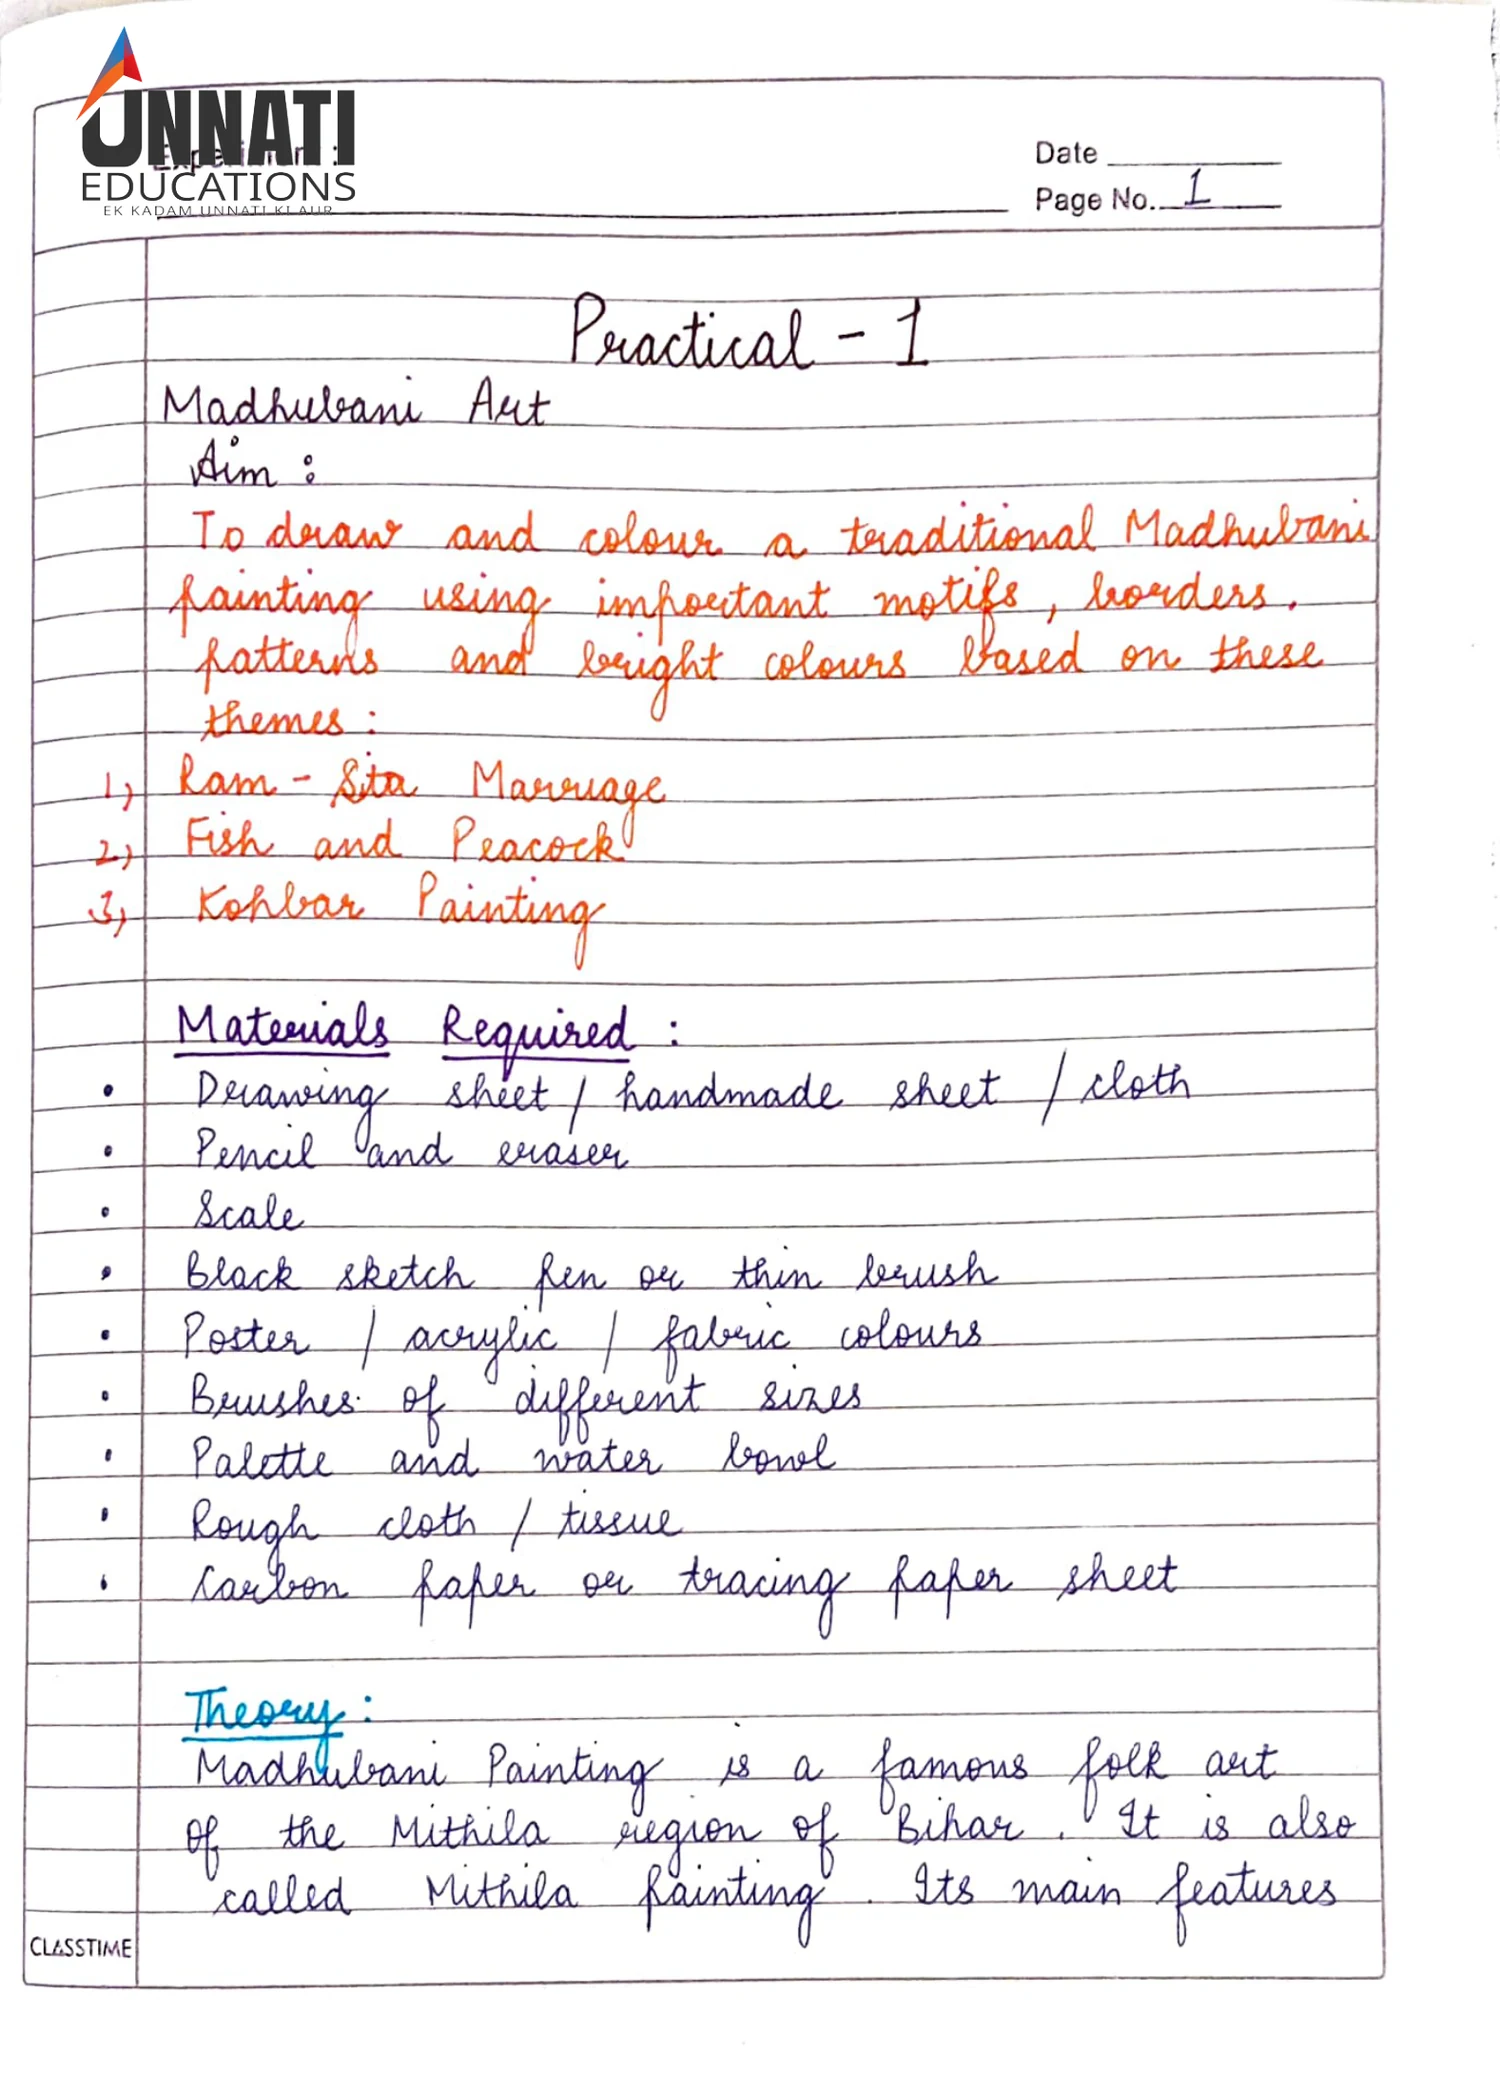 UNNATI
EDUCATIONS
EK KADAM UNNATI KI AUR
Date
Page No. 1
Practical - 1
Madhubani Art
Aim :
To draw and colour a traditional Madhubani
painting using important motifs, borders.
patterns and bright colours based on these
themes :
1) Ram - Sita Marriage
2) Fish and Peacock
3) Kohbar Painting
Materials Required :
• Drawing sheet / handmade sheet / cloth
• Pencil and eraser
• Scale
• Black sketch pen or thin brush
• Poster / acrylic / fabric colours
• Brushes of different sizes
• Palette and water bowl
• Rough cloth / tissue
• Carbon paper or tracing paper sheet
Theory :
Madhubani Painting is a famous folk art
of the Mithila region of Bihar. It is also
called Mithila painting. Its main features
CLASSTIME